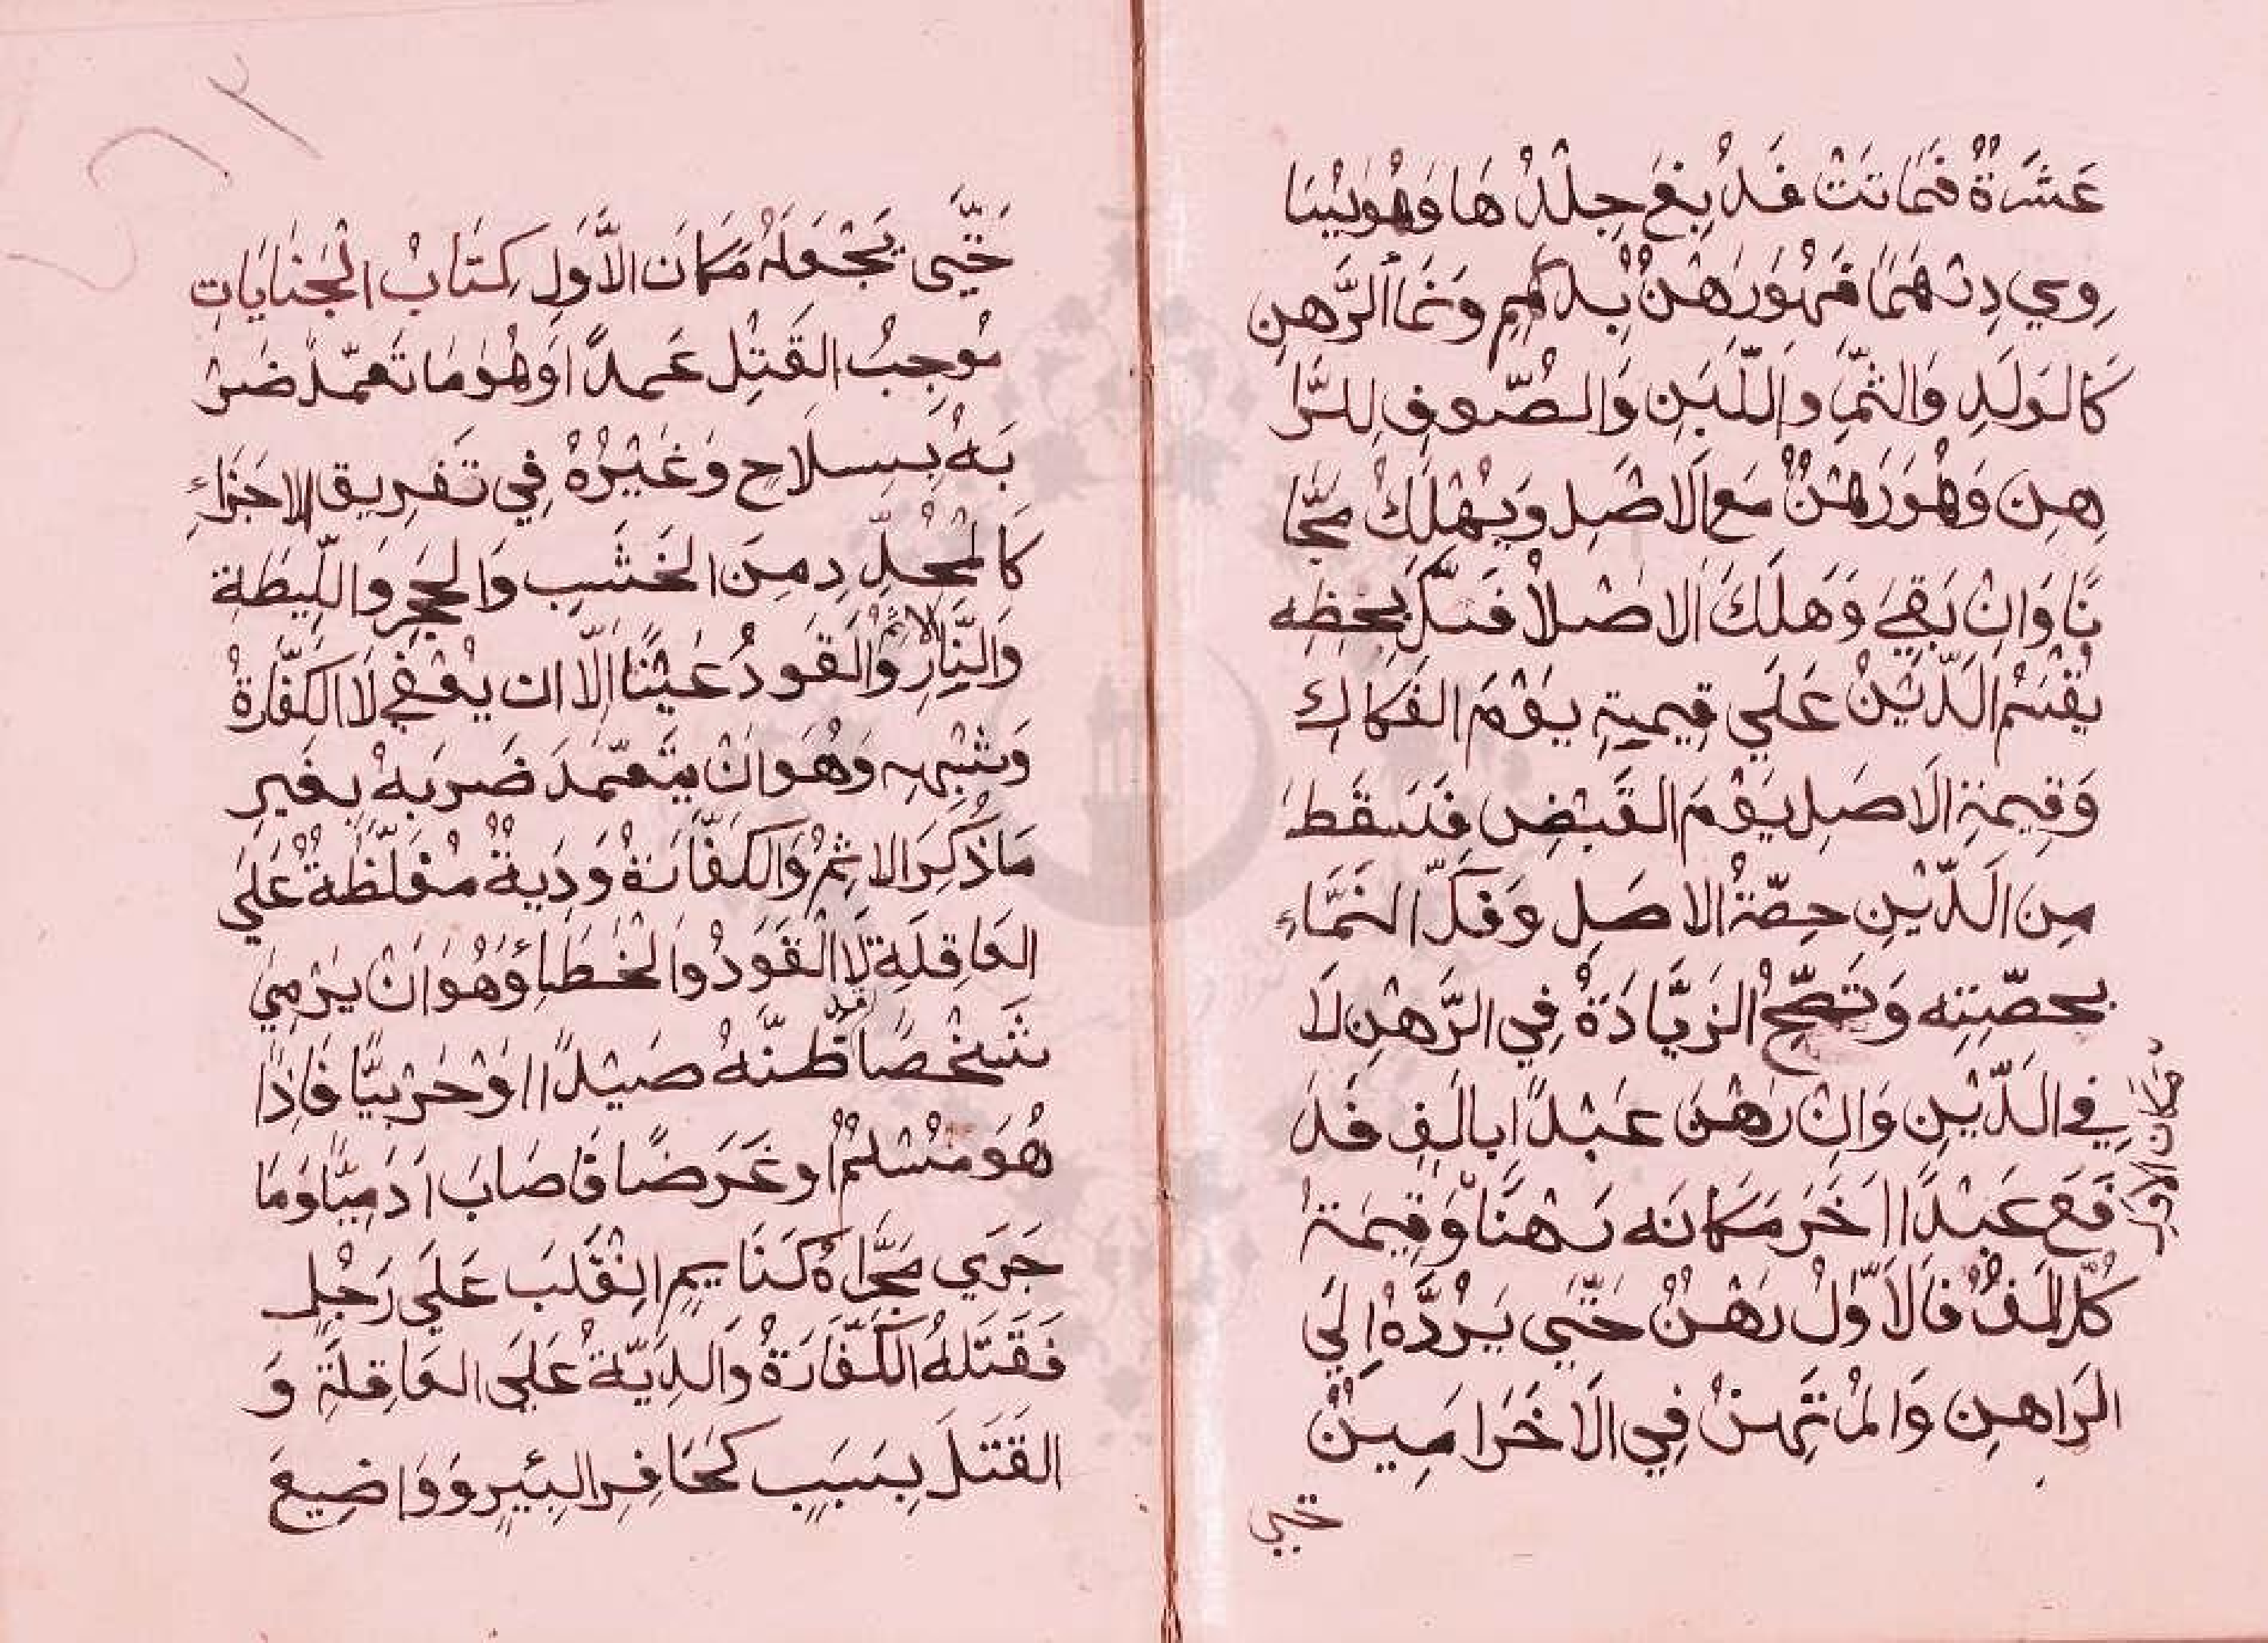 عَشَرَةٌ فَمَاتَتْ فَدُبِغَ جِلْدُهَا وَهُوَ يُسَا
وِي دِرْهَمًا فَهُوَ رَهْنٌ بِدِرْهَمٍ وَنَمَا الرَّهْنِ
كَالوَلَدِ وَالثَّمَرِ وَاللَّبَنِ وَالصُّوفِ لِلرَّا
هِنِ وَهُوَ رَهْنٌ مَعَ الاَصْلِ وَيَهْلَكُ مَجَّا
نًا وَاِنْ بَقِيَ وَهَلَكَ الاَصْلُ فَكَّ بِحَظِّهِ
يُقْسَمُ الدَّيْنُ عَلَي قِيمَتِهِ يَوْمَ الفَكَاكِ
وَقِيمَةِ الاَصْلِ يَوْمَ القَبْضِ فَتَسْقُطُ
مِنَ الدَّيْنِ حِصَّةُ الاَصْلِ وَفَكَّ النَّمَاءِ
بِحِصَّتِهِ وَتَصِحُّ الزِّيَادَةُ فِي الرَّهْنِ لَا
فِي الدَّيْنِ وَاِنْ رَهَنَ عَبْدًا بِاَلْفٍ فَدَ
فَعَ عَبْدًا اٰخَرَ مَكَانَهُ رَهْنًا وَقِيمَةُ
مكان الاول
كُلٍّ اَلْفٌ فَالاَوَّلُ رَهْنٌ حَتَّي يَرُدَّهُ اِلَي
الرَّاهِنِ وَالمُرْتَهِنُ فِي الاٰخَرِ اَمِينٌ
حتي
حَتَّي يَجْعَلَهُ مَكَانَ الاَوَّلِ كِتَابُ الجِنَايَاتِ
مُوجِبُ القَتْلِ عَمْدًا وَهُوَ مَا تَعَمَّدَ ضَرْ
بَهُ بِسِلَاحٍ وَغَيْرُهُ فِي تَفْرِيقِ الاَجْزَاءِ
كَالمُحَدَّدِ مِنَ الخَشَبِ وَالحَجَرِ وَاللِّيطَةِ
وَالنَّارِ الاِثْمُ وَالقَوَدُ عَيْنًا اِلَّا ان يُعْفَي لَا الكَفَّارَةُ
وَشِبْهِهِ وَهُوَ اَنْ يَتَعَمَّدَ ضَرْبَهُ بِغَيْرِ
مَا ذُكِرَ الاِثْمُ وَالكَفَّارَةُ وَدِيَةٌ مُغَلَّظَةٌ عَلَي
العَاقِلَةِ لَا القَوَدُ وَالخَطَاءِ وَهُوَ اَنْ يَرْمِيَ
شَخْصًا ظَنَّهُ صَيْدًا اَوْ حَرْبِيًّا فَاِذَا
هُوَ مُسْلِمٌ اَو غَرَضًا فَاصَابَ اٰدَمِيًّا وَمَا
جَرَي مَجْرَاهُ كَنَايِمٍ اِنْقَلَبَ عَلَي رَجُلٍ
فَقَتَلَهُ الكَفَّارَةُ وَالدِّيَةُ عَلَي العَاقِلَةِ وَ
القَتْلَ بِسَبَبٍ كَحَافِرِ البِئْيرِ وَوَاضِعِ